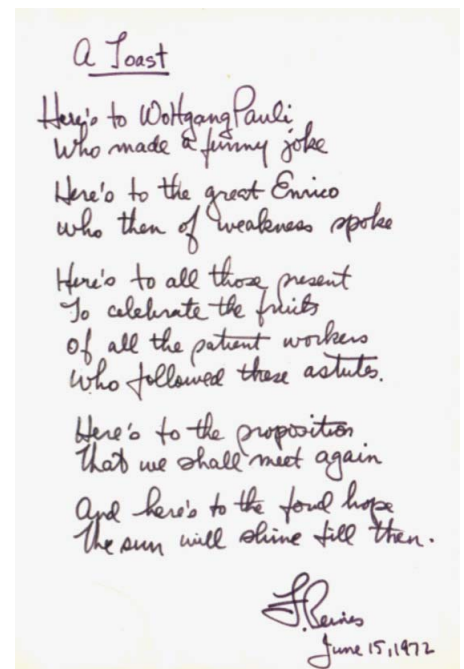 A Toast
Here's to Wolfgang Pauli
Who made a funny joke
Here's to the great Enrico
who then of weakness spoke
Here's to all those present
To celebrate the fruits
of all the patient workers
who followed these astutes.
Here's to the proposition
That we shall meet again
And here's to the fond hope
The sun will shine till then.
F. Reines
June 15, 1972